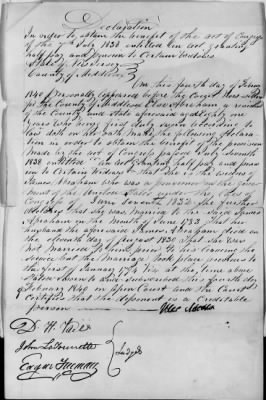 Declaration
In order to obtain the benefit of the act of Congress
of the 7th July 1838 entitled an act granting
half pay and pension to Certain Widows
State of New Jersey
County of Middlesex
On this fourth day of February
1840 Personally appeared before the Court
of the County of Middlesex
of the County and State aforesaid
years who being first duly sworn according to
law doth on her oath make the following declara
tion in order to obtain the benefit of the provision
made by the act of Congress passed July seventh
1838 entitled an act granting half pay and pen
sion to Certain Widows that she is the widow of
James Abraham who was a pensioner
of the United States under the act of
Congress of June seventh 1832 She further
declares that she was married to the said James
Abraham in the month of June 1783 That her
husband the aforesaid James Abraham died on
the eleventh day of August 1830 That she was
not married to him prior to his leaving the
service but the marriage took place previous to
the first of January 1794 Viz at the time above
stated Sworn and subscribed this fourth day
February 1840 in open Court and the Court
Certifies that the deponent is a Creditable
person
D. H.
John
Judges